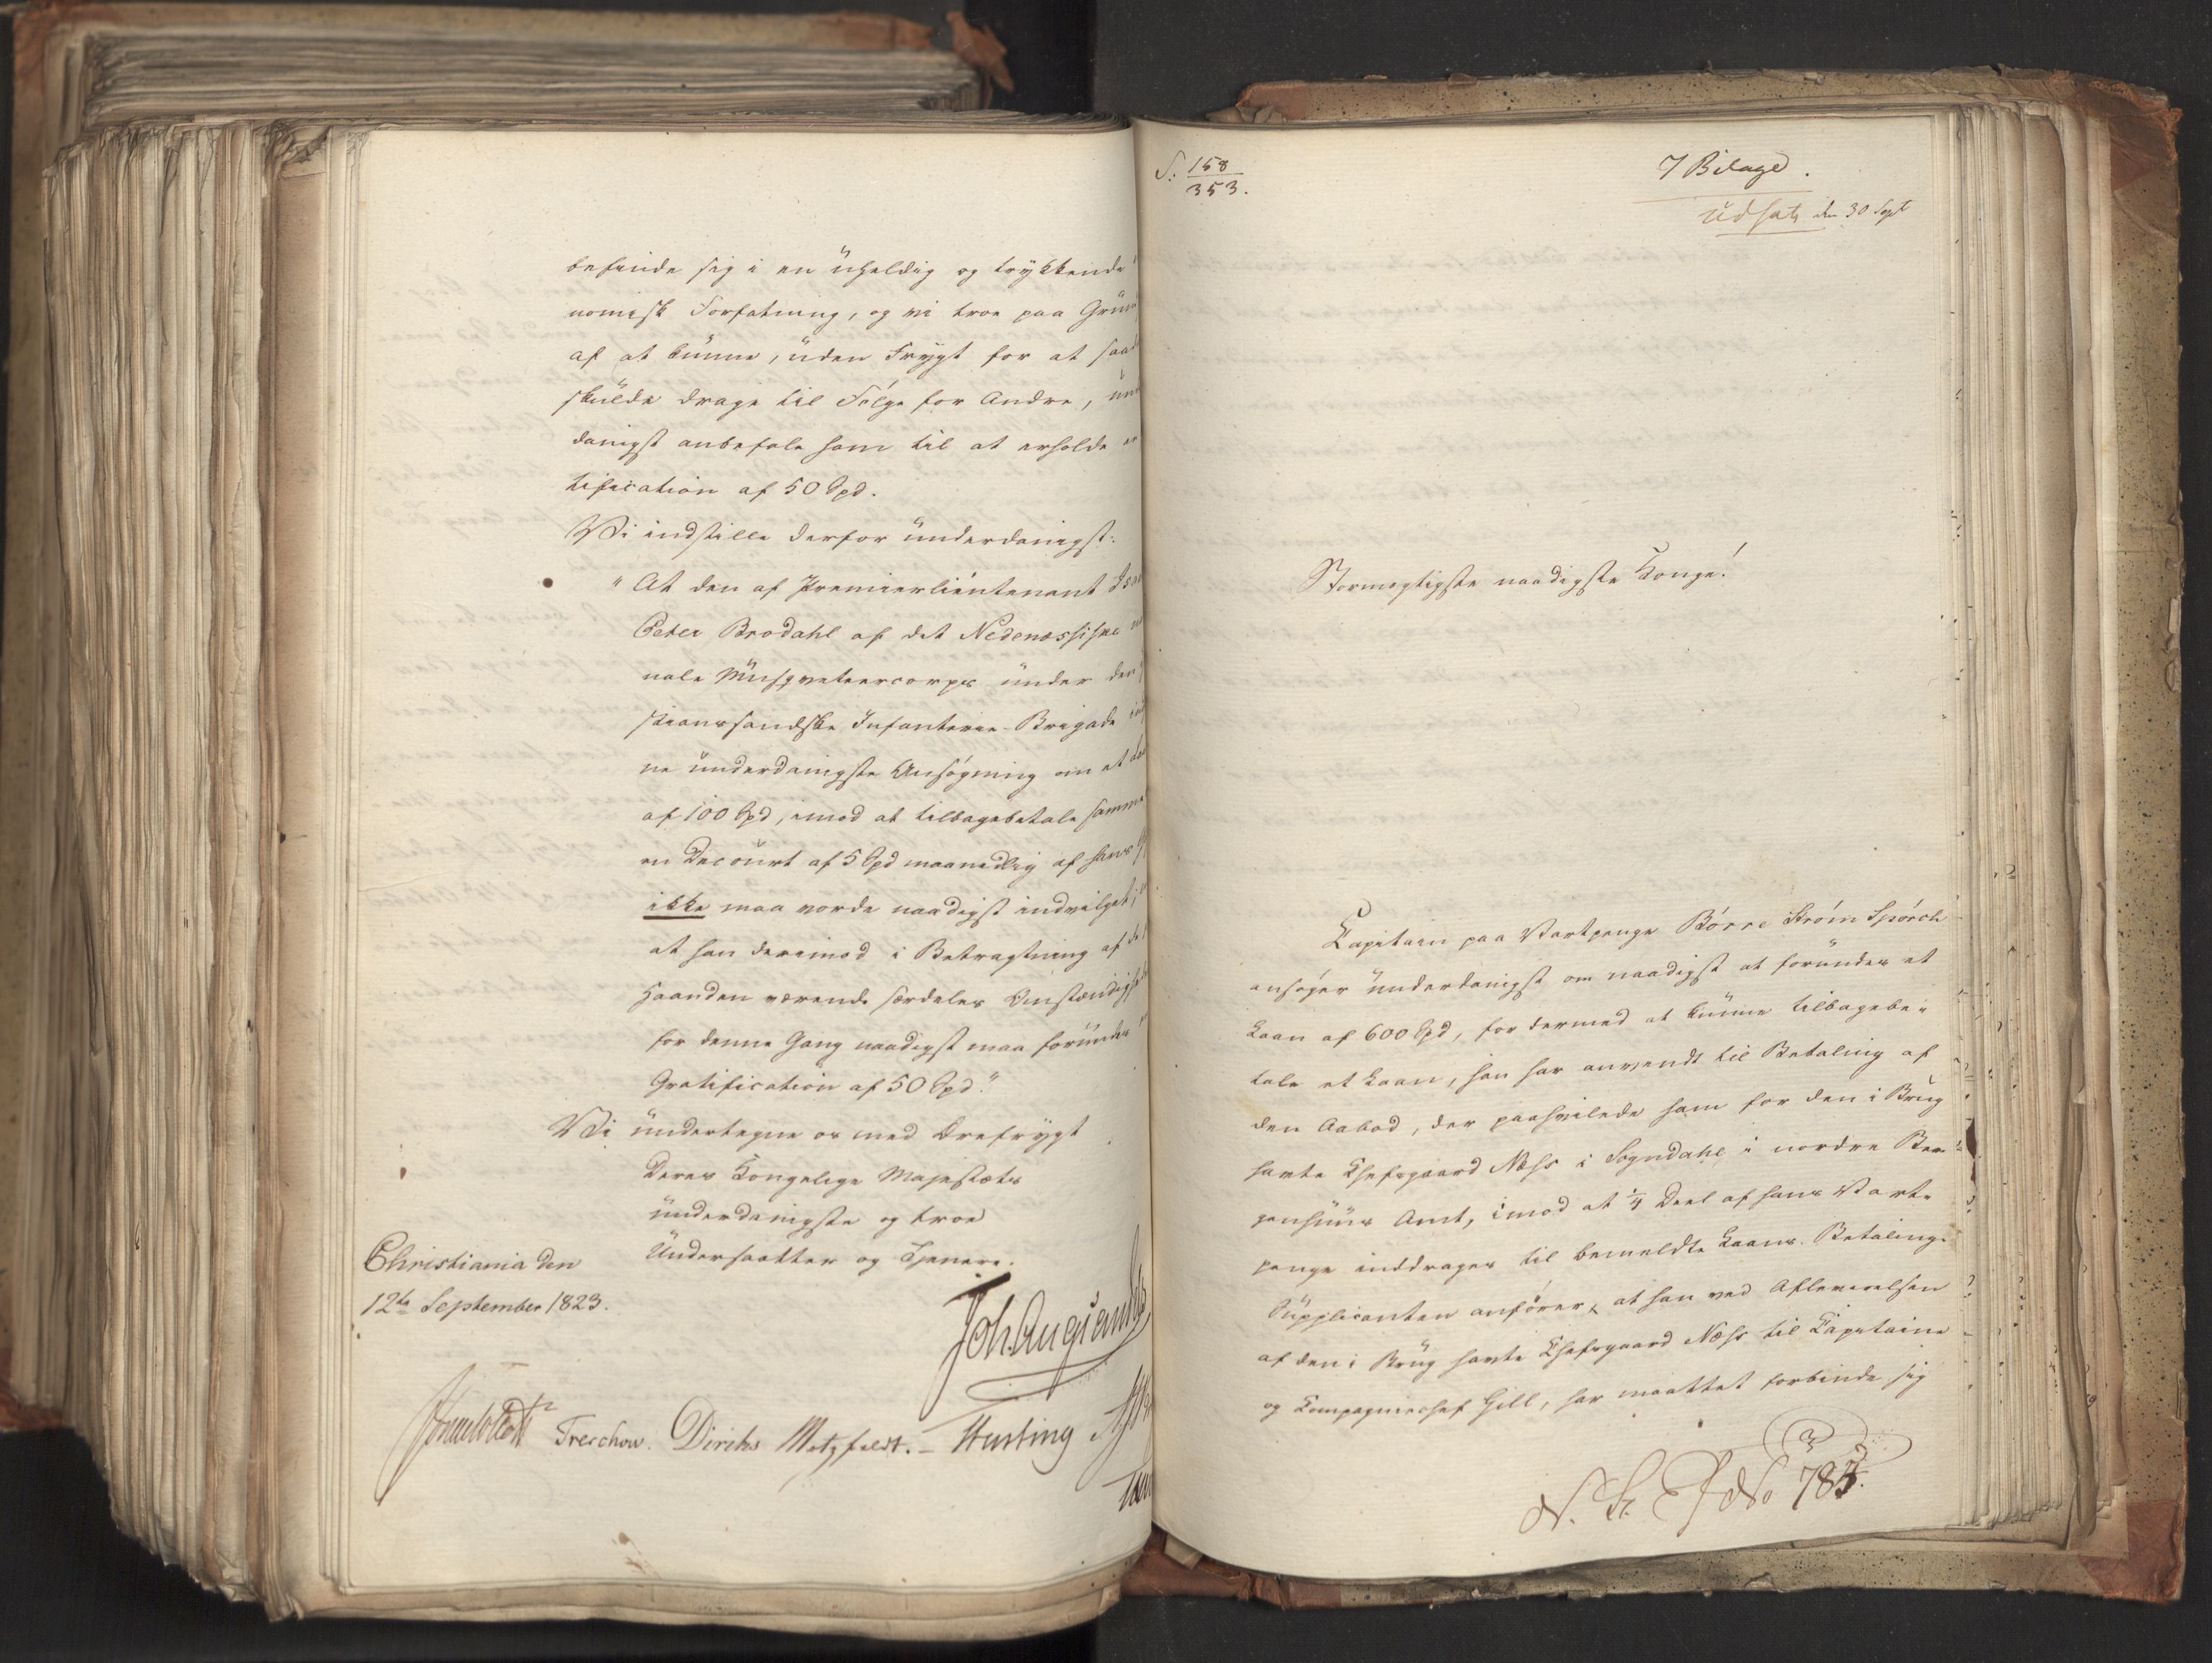 befinde sig i en uheldig og trykkende
nomisk Forfatning, og vi troe paa Grund
af at kunne, uden Frygt for at saad
skulde drage til Følge for Andre, un
danigst anbefale ham til at erholde en
tification af 50 Spd.
Vi indstille derfor underdanigst:
"At den af Premierlieutenant
Peter Brodahl af det Nedenæssiske
nale Musqveteercorps under den
stianssandske Infanterie-Brigade ind
ne underdanigste Ansøgning om et
af 100 Spd, imod at tilbagebetale samme
en Decourt af 5 Spd maanedlig af hans
ikke maa vorde naadigst indvilget;
at han derimod i Betragtning af de
Haanden værende særdeles Omstændighe
for denne Gang naadigst maa forundes
Gratification af 50 Spd."
Vi undertegne os med Ærefrygt
Deres Kongelige Majestæts
underdanigste og troe
Undersaatter og Tjenere.
Christiania den
12te September 1823.
Treschow. Diriks Motzfeldt. Hersting
S: 158
353.
7 Bilage.
udsat den 30 Sept
Stormægtigste naadigste Konge!
Capitain paa Vartpenge Børre Strøm Spørck
ansøger underdanigst om naadigst at forundes et
Laan af 600 Spd, for dermed at kunne tilbagebe-
tale et Laan, han har anvendt til Betaling af
den Aabod, der paahvilede ham for den i Brug
havte Chefsgaard Næss i Sogndahl i nordre Ber-
genhuus Amt, imod at 1/4 Deel af hans Varte
penge inddrages til bemeldte Laans Betaling.
Supplicanten anfører, at han ved Afleverelsen
af den i Brug havte Chefsgaard Næss til Capitaine
og Compagniechef Gill, har maattet forbinde sig
No 783.